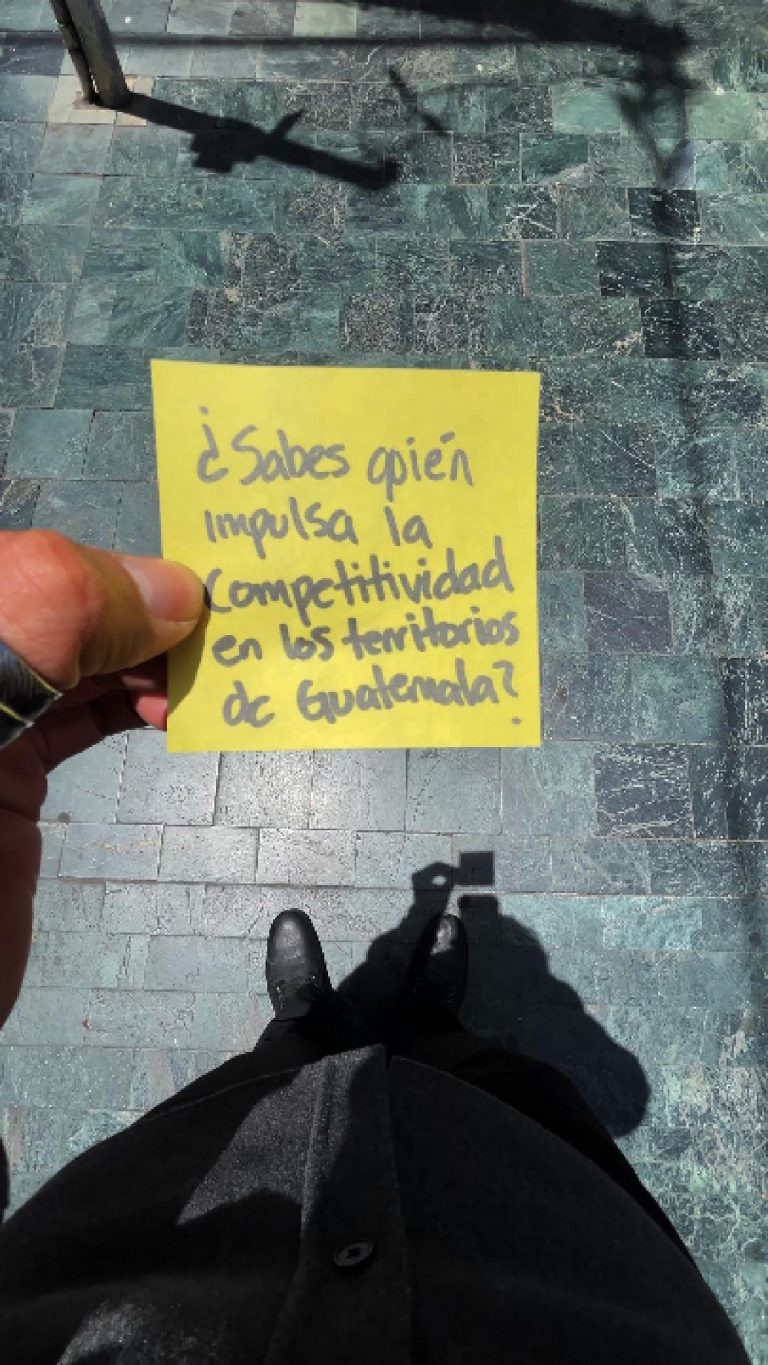 ¿Sabes quién
impulsa la
Competitividad
en los territorios
de Guatemala?